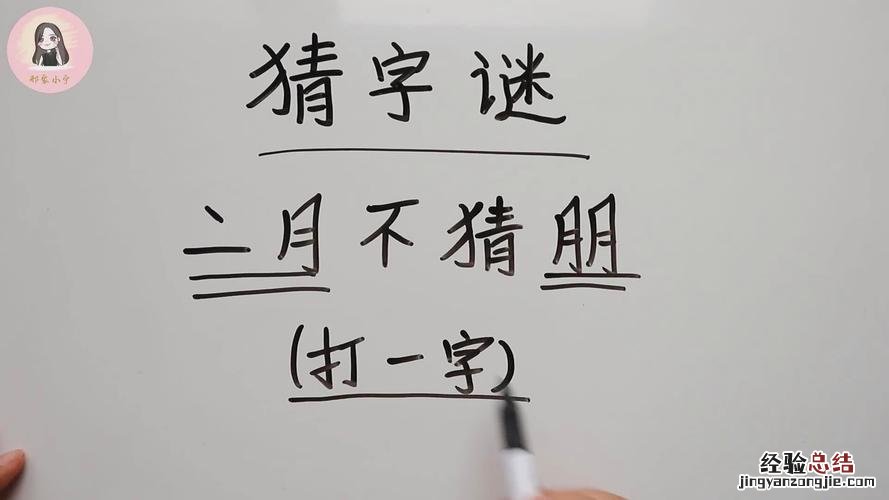 邢家小宁
猜字谜
二月不猜朋
(打一字)
经验总结
jingyanzongjie.com